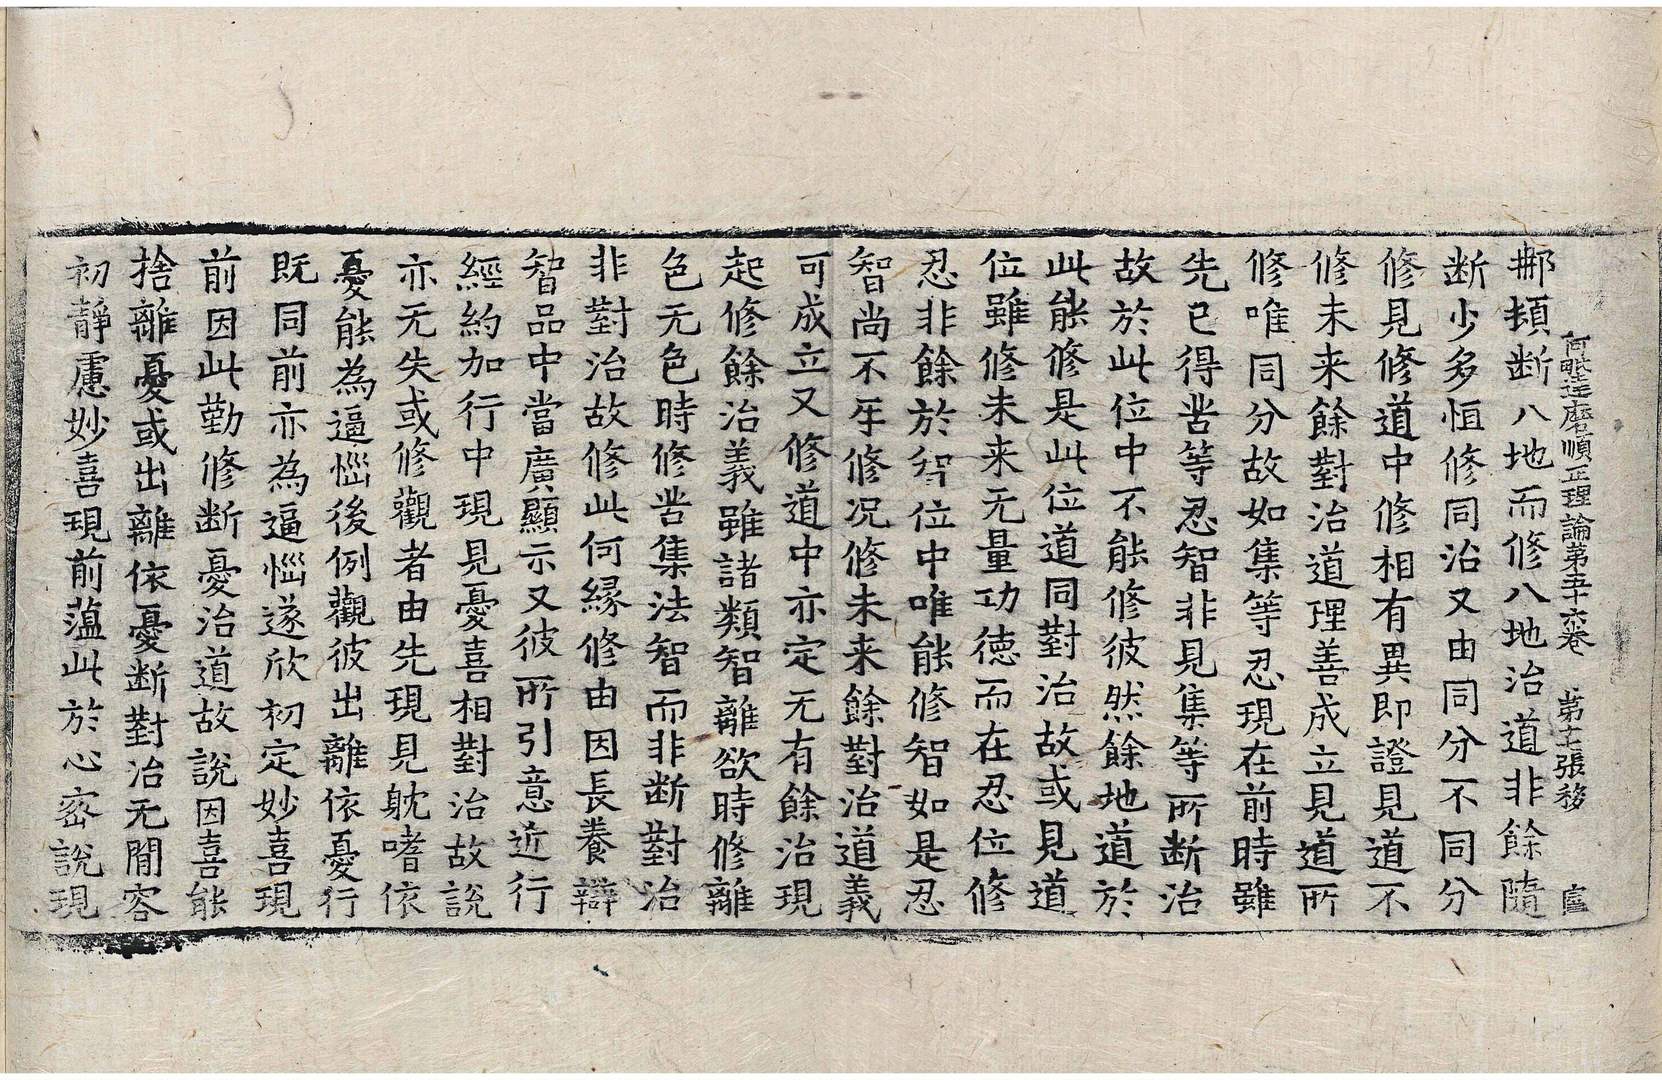 阿毗達磨順正理論第五十六卷 第十二張 移
那頓断八地而修八地治道非餘隨
断少多恒修同治又由同分不同分
修見修道中修相有異即證見道不
修未来餘對治道理善成立見道所
修唯同分故如集等忍現在前時雖
先已得苦等忍智非見集等所断治
故於此位中不能修彼然餘地道於
此能修是此位道同對治故或見道
位雖修未来无量功德而在忍位修
忍非餘於智位中唯能修智如是忍
智尚不牙修况修未来餘對治道義
可成立又修道中亦定无有餘治現
起修餘治義雖諸類智離欲時修離
色无色時修苦集法智而非断對治
非對治故修此何縁修由因長養辯
智品中當廣顯示又彼所引意近行
經約加行中現見憂喜相對治故說
亦无失或修觀者由先現見躭嗜依
憂能為逼惱後例觀彼出離依憂行
既同前亦為逼惱遂欣初定妙喜現
前因此勤修断憂治道故說因喜能
捨離憂或出離依憂憂断對治无間容
初靜慮妙喜現前薀此於心密說現